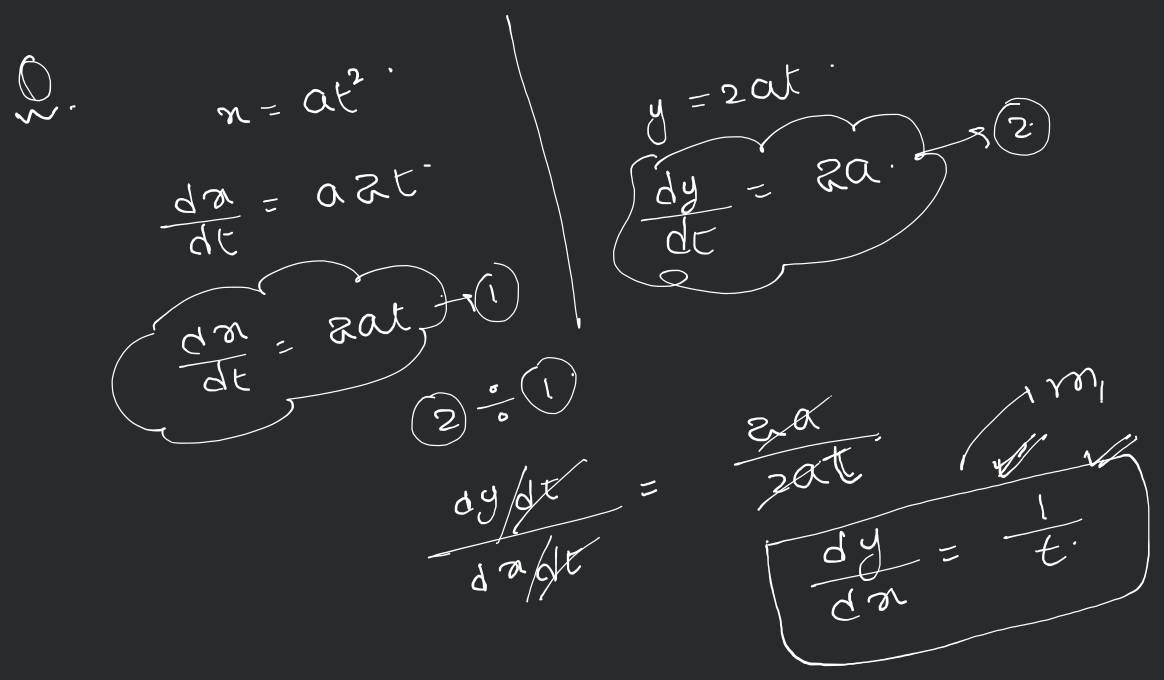 Q.
x = at²
dx/dt = a2t
dx/dt = 2at → ①
y = 2at
dy/dt = 2a. → ②
② ÷ ①
dy/dt / dx/dt = 2a / 2at
dy/dx = 1/t. m₁